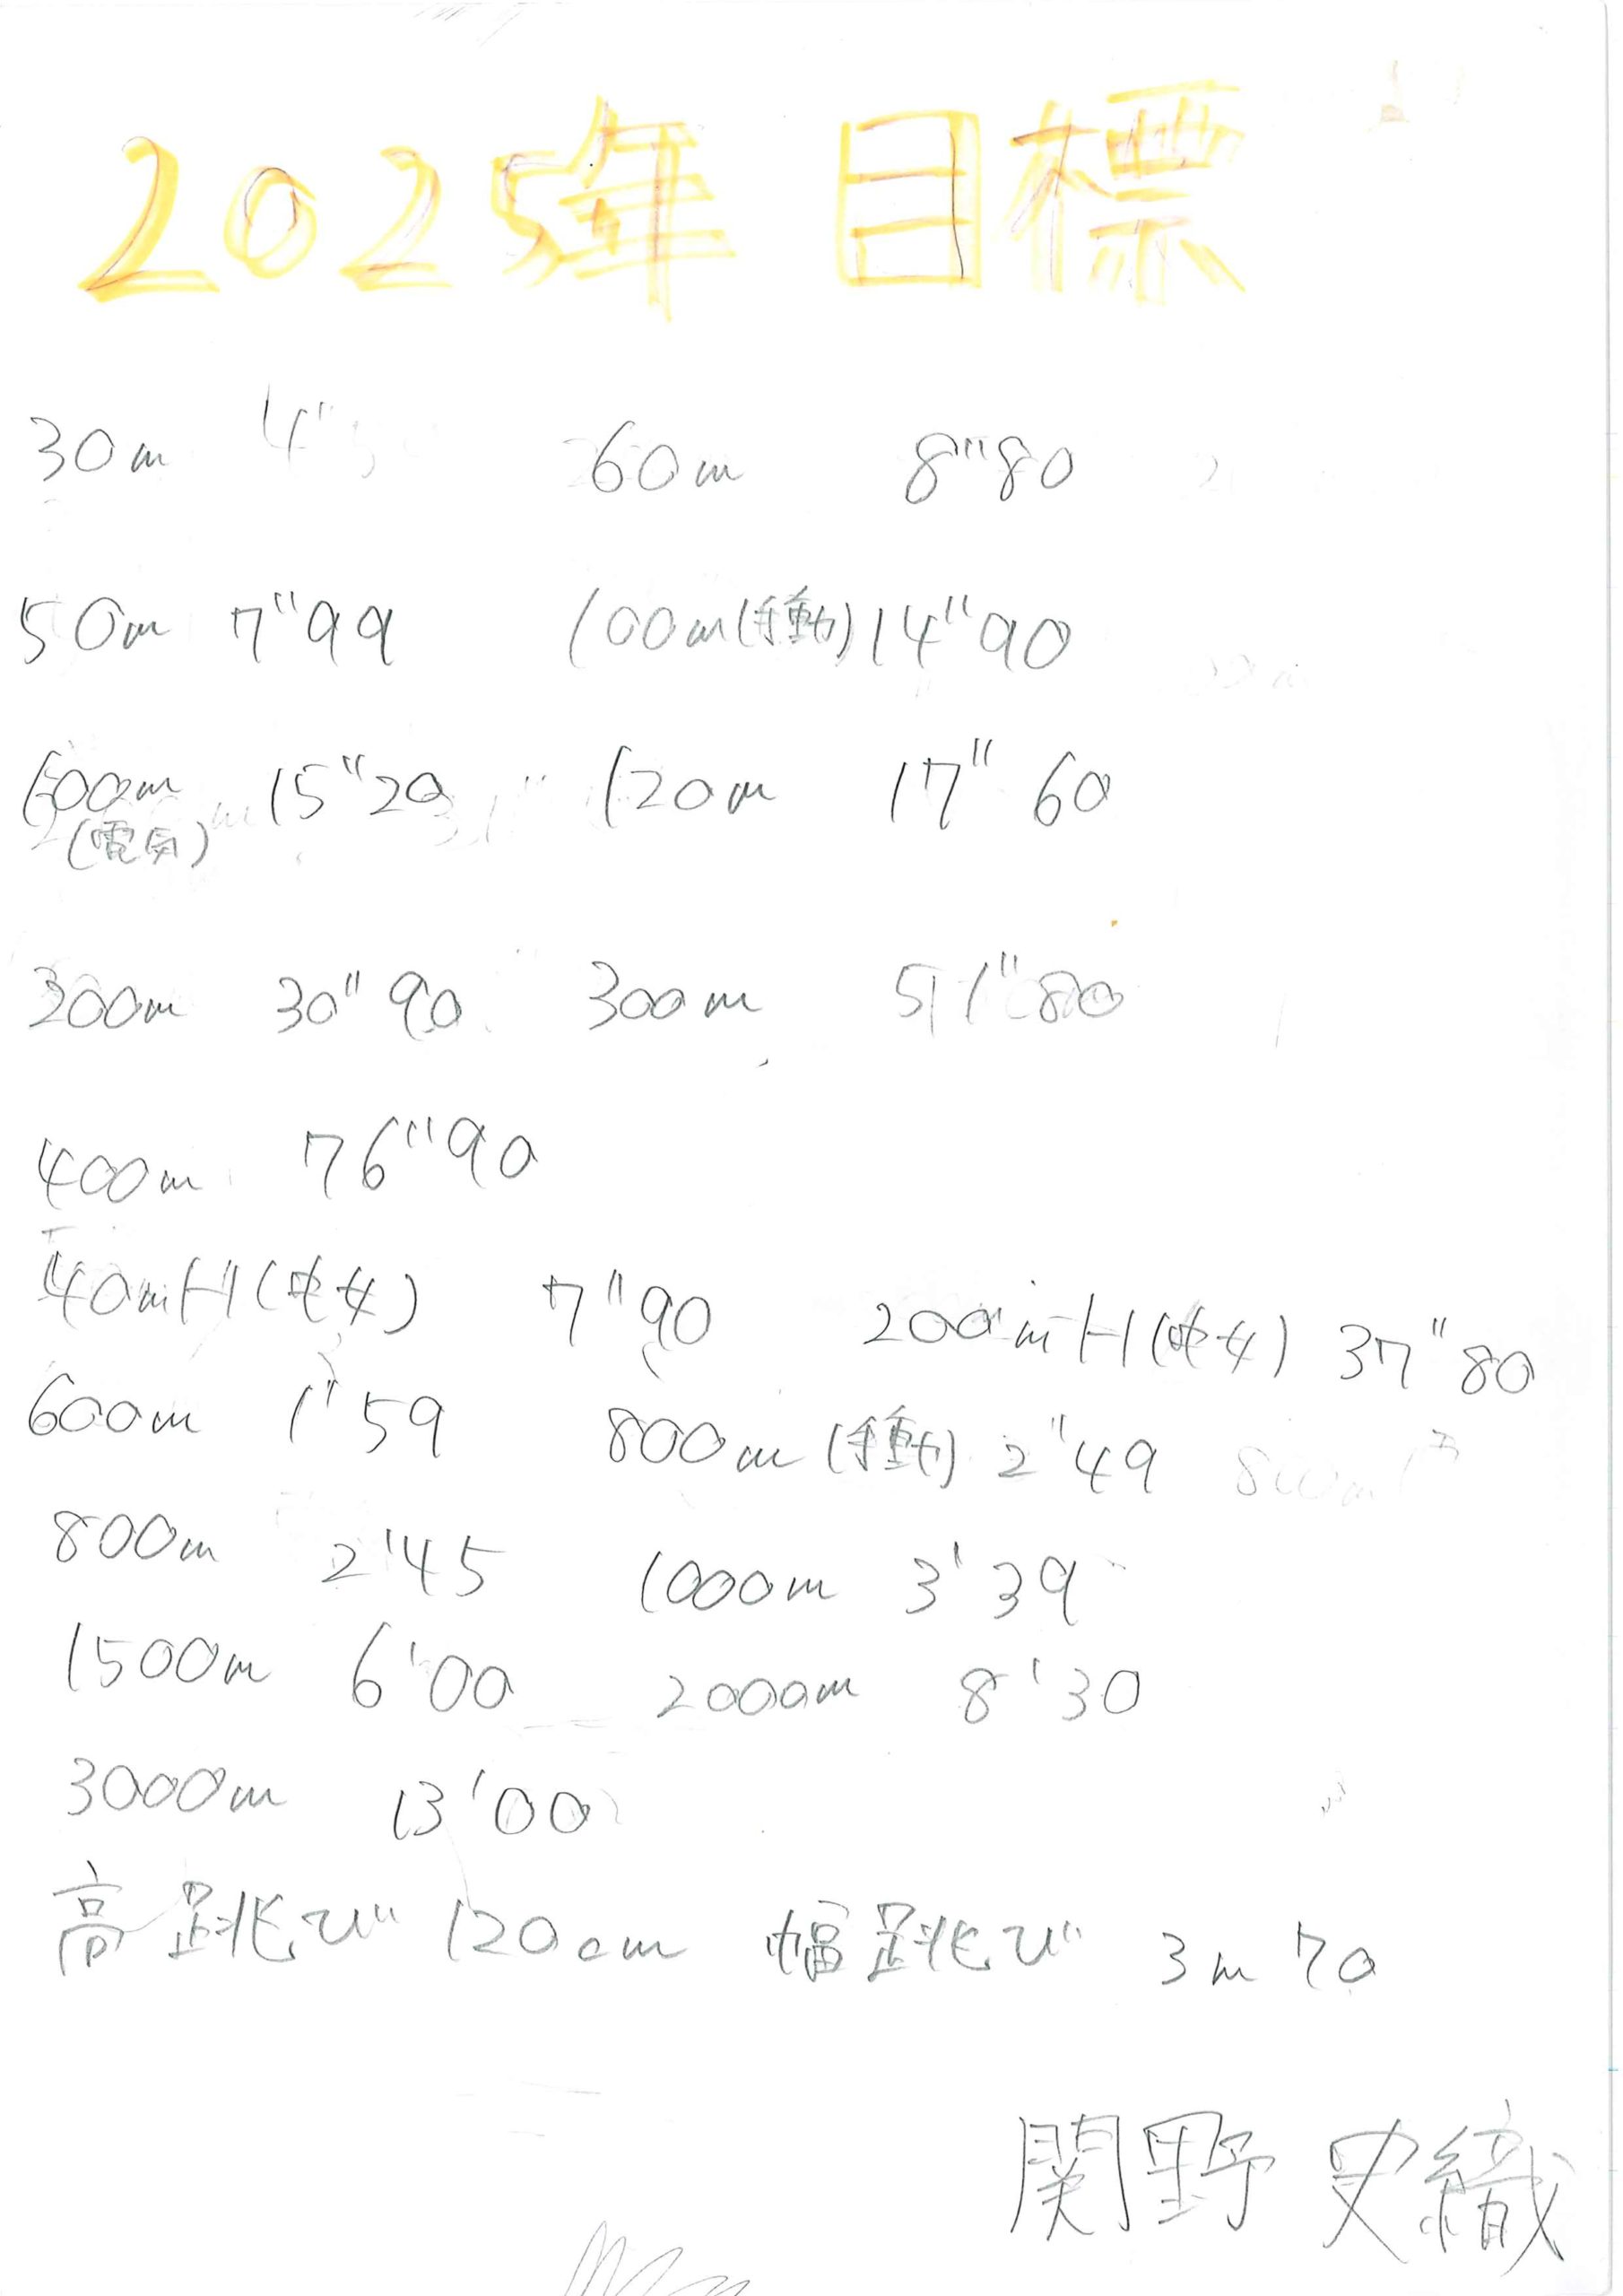 2025年 目標
30m 4" 60m 8"80
50m 7"99 100m(手動) 14"90
100m 15"20 120m 17"60
(電気)
200m 30"90 300m 51"80
400m 76"90
40mH(中女) 7"90 200mH(中女) 37"80
600m 1'59 800m(手動) 2"49
800m 2'45 1000m 3'39
1500m 6'00 2000m 8'30
3000m 13'00
高跳び 120cm 幅跳び 3m70
関野 史織